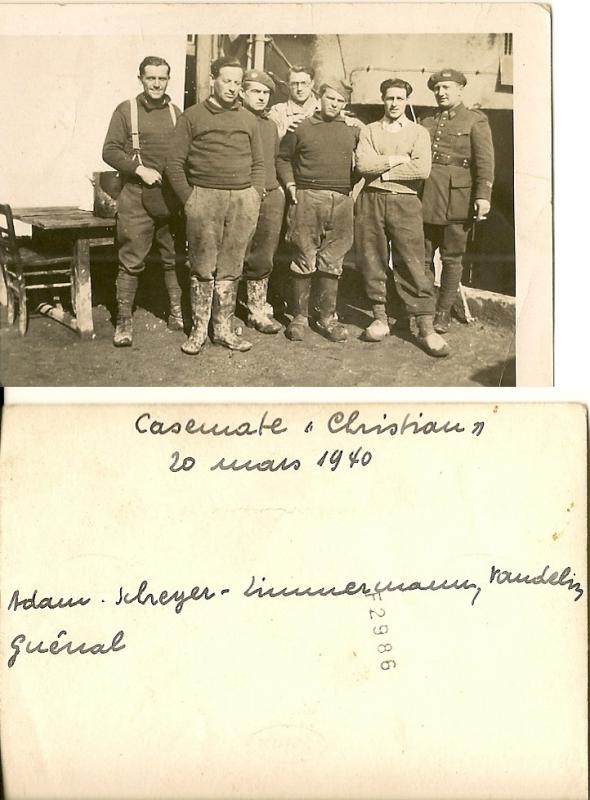 Casemate « Christian »
20 mars 1940
Adam - Schreyer - Zimmermann, Vandelin,
Guénal
F2986